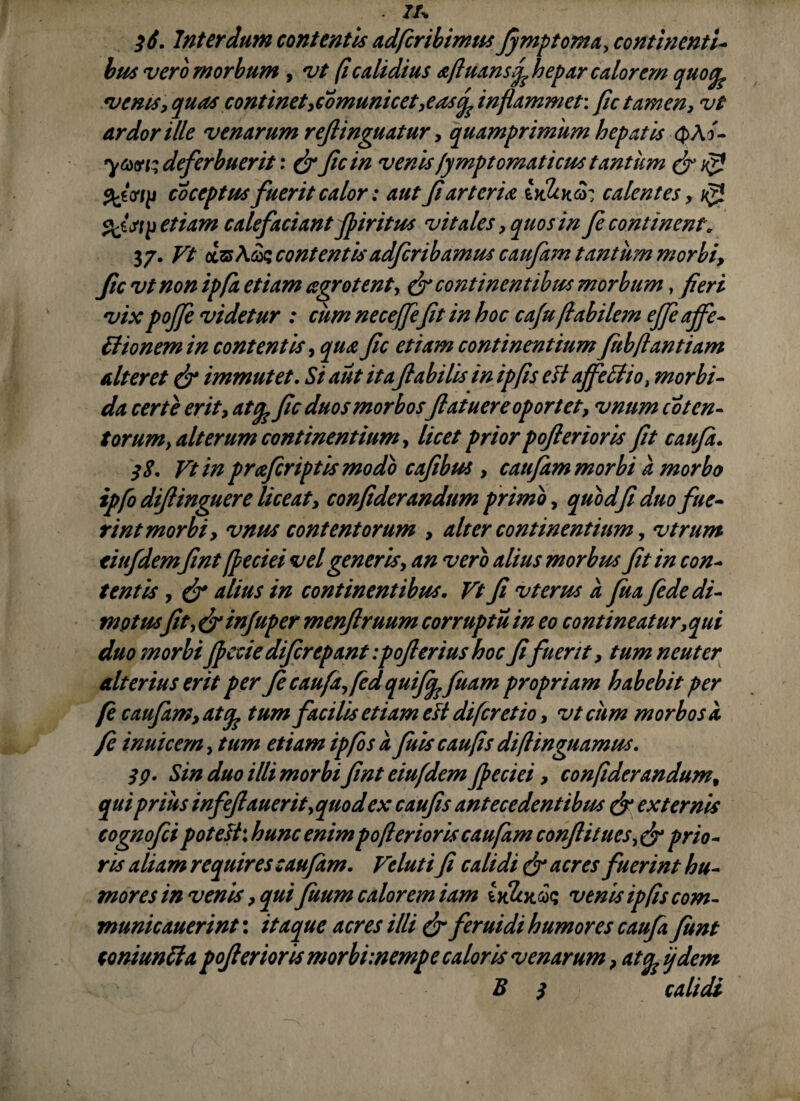 36. Interdum contentis adſcribimus ſymptoma, continenti-
bus vero morbum, vt ſi calidius æſtuansq́; hepar calorem quoq;
venis, quas continet, cōmunicet, easq́; inflammet: ſic tamen, vt
ardor ille venarum reſtinguatur, quamprimùm hepatis φλό-
γωσις deferbuerit: & ſic in venis ſymptomaticus tantùm & κỳ
χέσιμ cōceptus fuerit calor: aut ſi arteriæ ἑκτικῶς calentes, κỳ
χέσιμ etiam calefaciant ſpiritus vitales, quos in ſe continent.
37. Vt ἁπλῶς contentis adſcribamus cauſam tantùm morbi,
ſic vt non ipſa etiam ægrotent, & continentibus morbum, fieri
vix poſſe videtur: cùm neceſſe ſit in hoc caſu ſtabilem eſſe affe-
ctionem in contentis, quæ ſic etiam continentium ſubſtantiam
alteret & immutet. Si aūt ita ſtabilis in ipſis eſt affectio, morbi-
da certè erit, atq; ſic duos morbos ſtatuere oportet, vnum cōten-
torum, alterum continentium, licet prior poſterioris ſit cauſa.
38. Vt in præſcriptis modò caſibus, cauſam morbi à morbo
ipſo diſtinguere liceat, conſiderandum primò, quòd ſi duo fue-
rint morbi, vnus contentorum, alter continentium, vtrum
eiuſdem ſint ſpeciei vel generis, an verò alius morbus ſit in con-
tentis, & alius in continentibus. Vt ſi vterus à ſua ſede di-
motus ſit, & inſuper menſtruum corruptū in eo contineatur, qui
duo morbi ſpecie diſcrepant: poſterius hoc ſi fuerit, tum neuter
alterius erit per ſe cauſa, ſed quiſq; ſuam propriam habebit per
ſe cauſam, atq; tum facilis etiam eſt diſcretio, vt cùm morbos à
ſe inuicem, tum etiam ipſos à ſuis cauſis diſtinguamus.
39. Sin duo illi morbi ſint eiuſdem ſpeciei, conſiderandum,
qui priùs infeſtauerit, quod ex cauſis antecedentibus & externis
cognoſci poteſt: hunc enim poſterioris cauſam conſtitues, & prio-
ris aliam requires cauſam. Veluti ſi calidi & acres fuerint hu-
mores in venis, qui ſuum calorem iam ἑκτικῶς venis ipſis com-
municauerint: itaque acres illi & feruidi humores cauſa ſunt
coniuncta poſterioris morbi: nempe caloris venarum, atq; ijdem
B 3 calidi